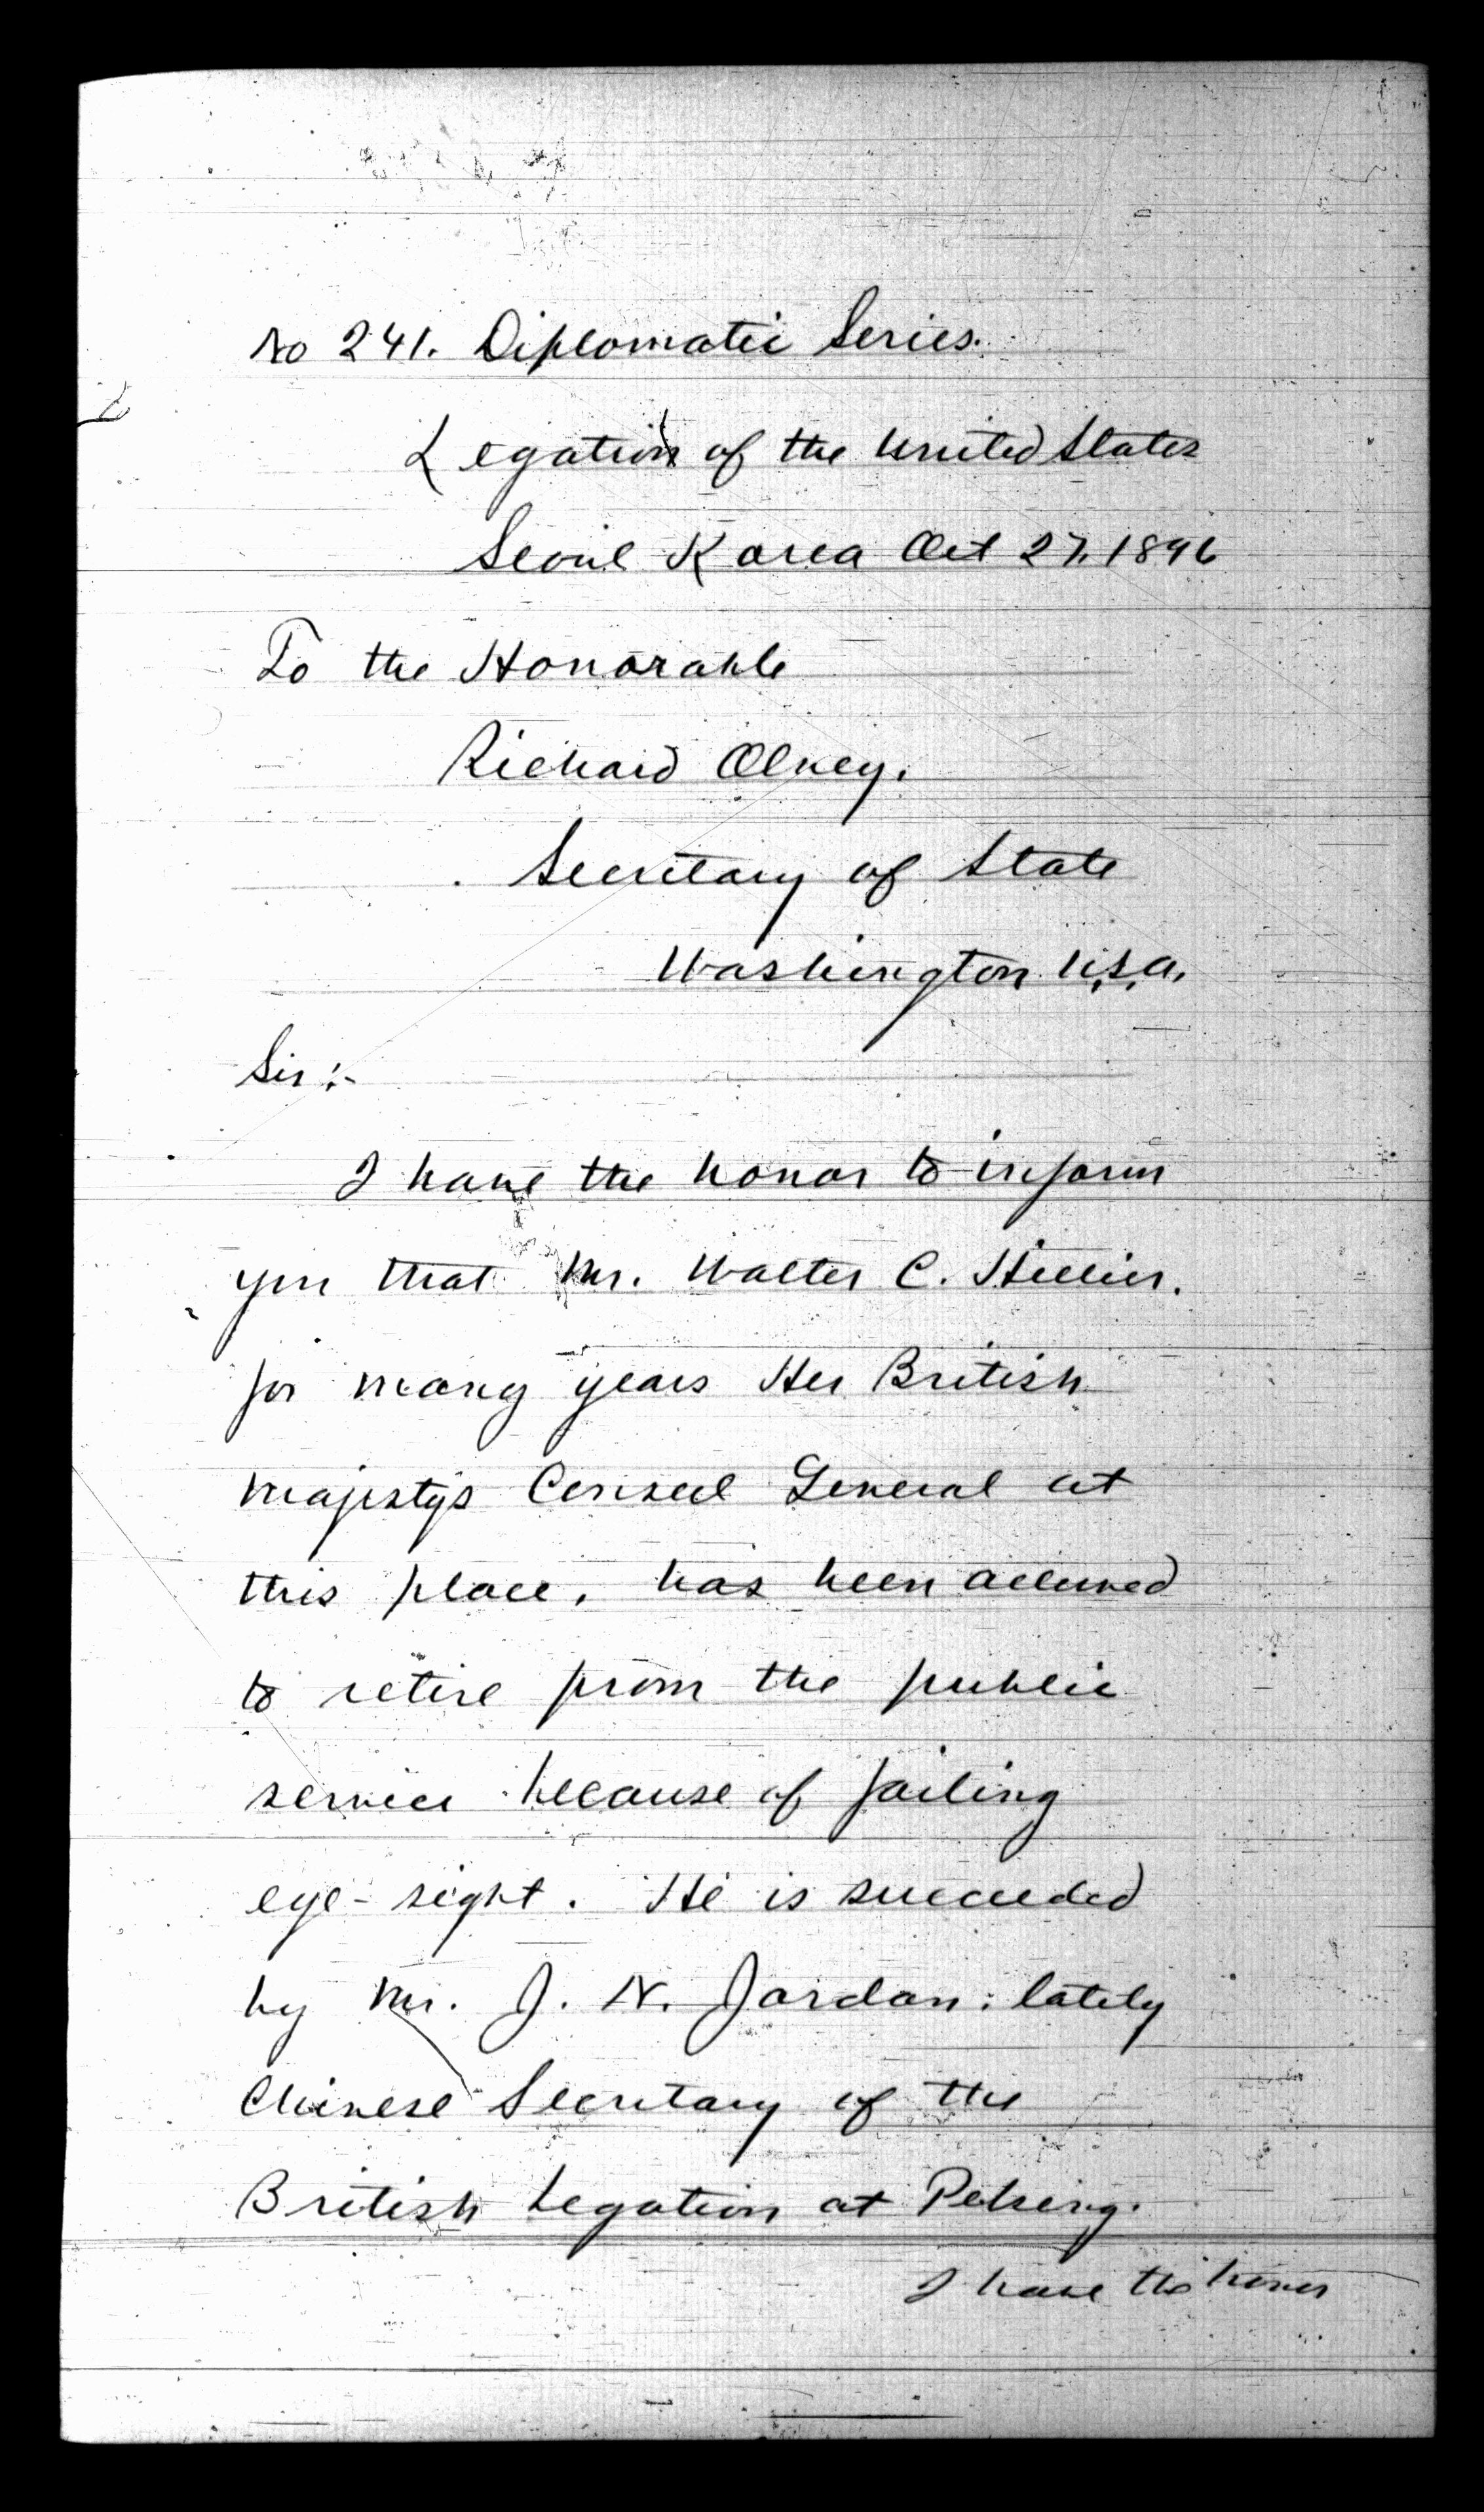 No 241. Diplomatic Series.
Legation of the United States
Seoul Korea Oct 27. 1896
To the Honorable
Richard Olney.
Secretary of State
Washington U.S.A.
Sir :-
I have the honor to inform
you that Mr. Walter C. Hillier.
for many years Her British
Majesty's Consul General at
this place, has been allowed
to retire from the public
service because of failing
eye-sight. He is succeeded
by Mr. J. N. Jordan: lately
Chinese Secretary of the
British Legation at Peking.
I have the honor